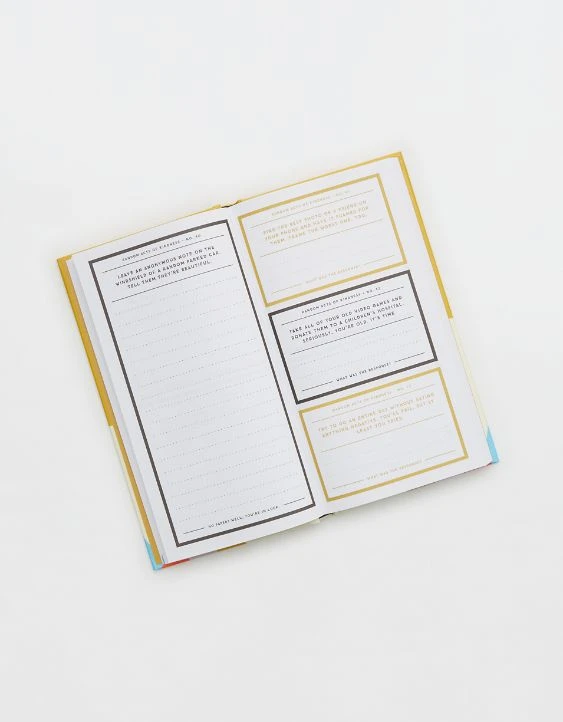 RANDOM ACTS OF KINDNESS - NO. 10
LEAVE AN ANONYMOUS NOTE ON THE
WINDSHIELD OF A RANDOM PARKED CAR.
TELL THEM THEY'RE BEAUTIFUL.
RANDOM ACTS OF KINDNESS - NO.
FIND THE BEST PHOTO OF A FRIEND ON
YOUR PHONE AND HAVE IT FRAMED FOR
THEM. FRAME THE WORST ONE, TOO.
WHAT WAS THE RESPONSE?
RANDOM ACTS OF KINDNESS - NO. 12
TAKE ALL OF YOUR OLD VIDEO GAMES AND
DONATE THEM TO A CHILDREN'S HOSPITAL
SERIOUSLY, YOU'RE OLD. IT'S TIME
WHAT WAS THE RESPONSE?
RANDOM ACTS OF KINDNESS - NO.
TRY TO GO AN ENTIRE DAY WITHOUT SAYING
ANYTHING NEGATIVE. YOU'LL FAIL, BUT AT
LEAST YOU TRIED.
WHAT WAS THE RESPONSE?